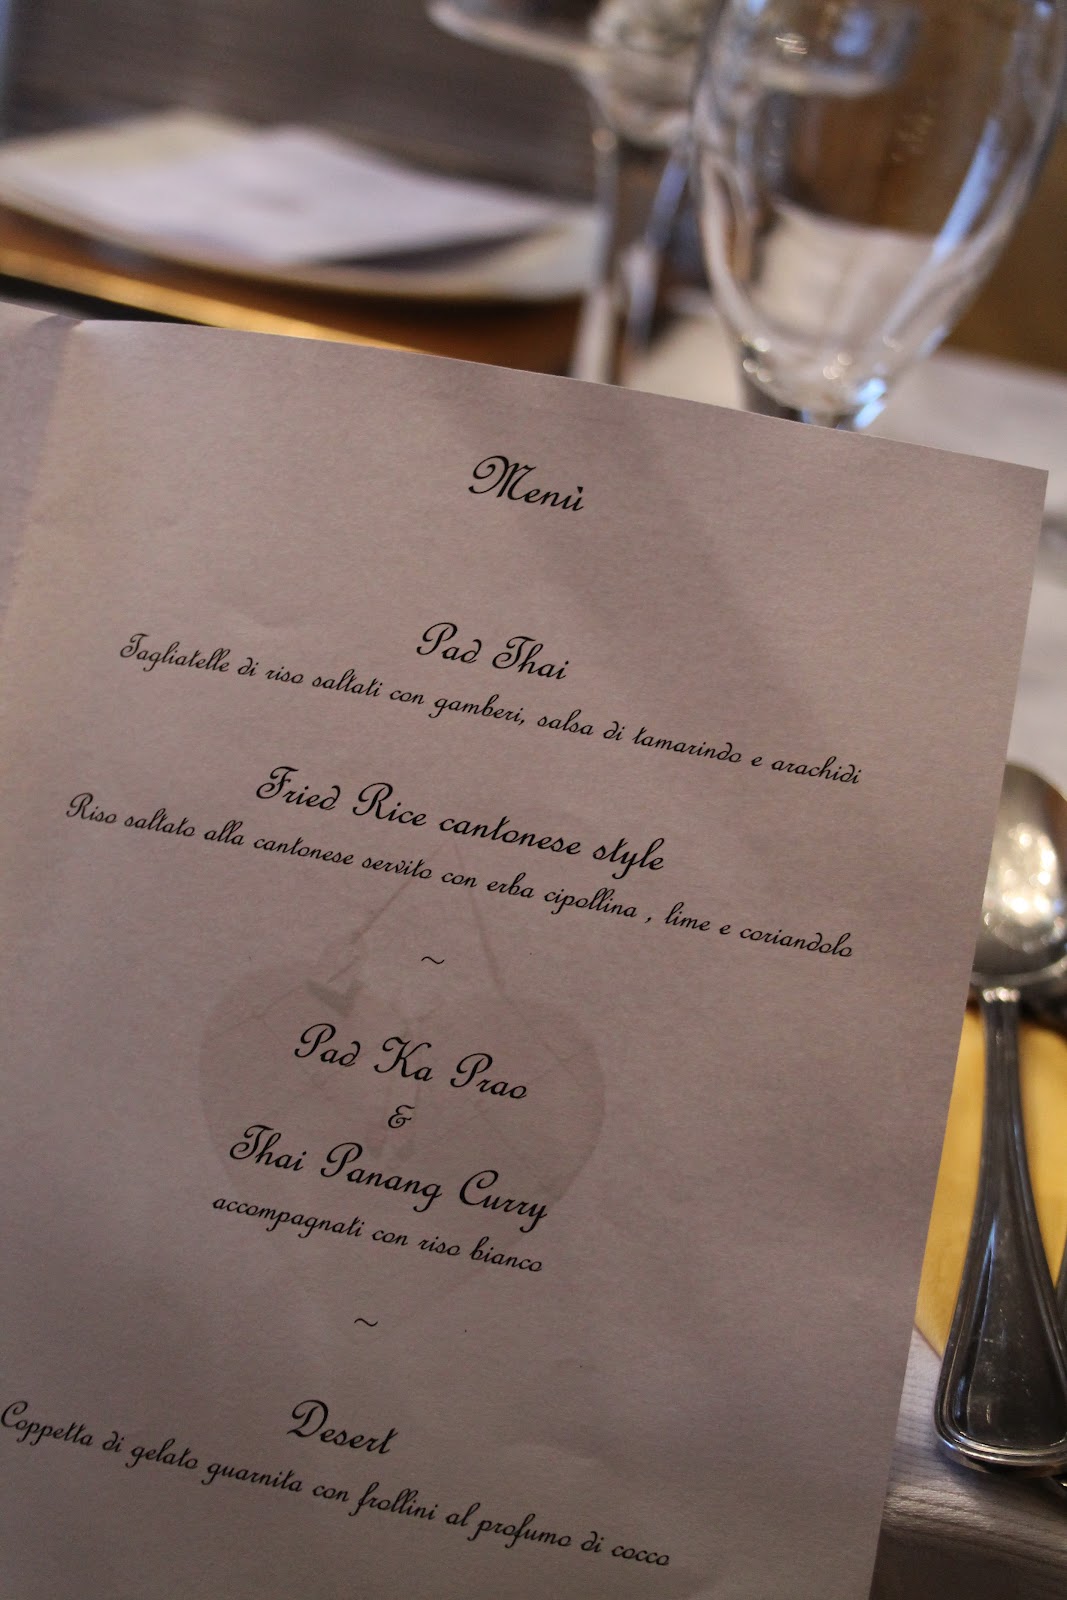 Menù
Pad Thai
Tagliatelle di riso saltati con gamberi, salsa di tamarindo e arachidi
Fried Rice cantonese style
Riso saltato alla cantonese servito con erba cipollina , lime e coriandolo
~
Pad Ka Prao
&
Thai Panang Curry
accompagnati con riso bianco
~
Desert
Coppetta di gelato guarnita con frollini al profumo di cocco